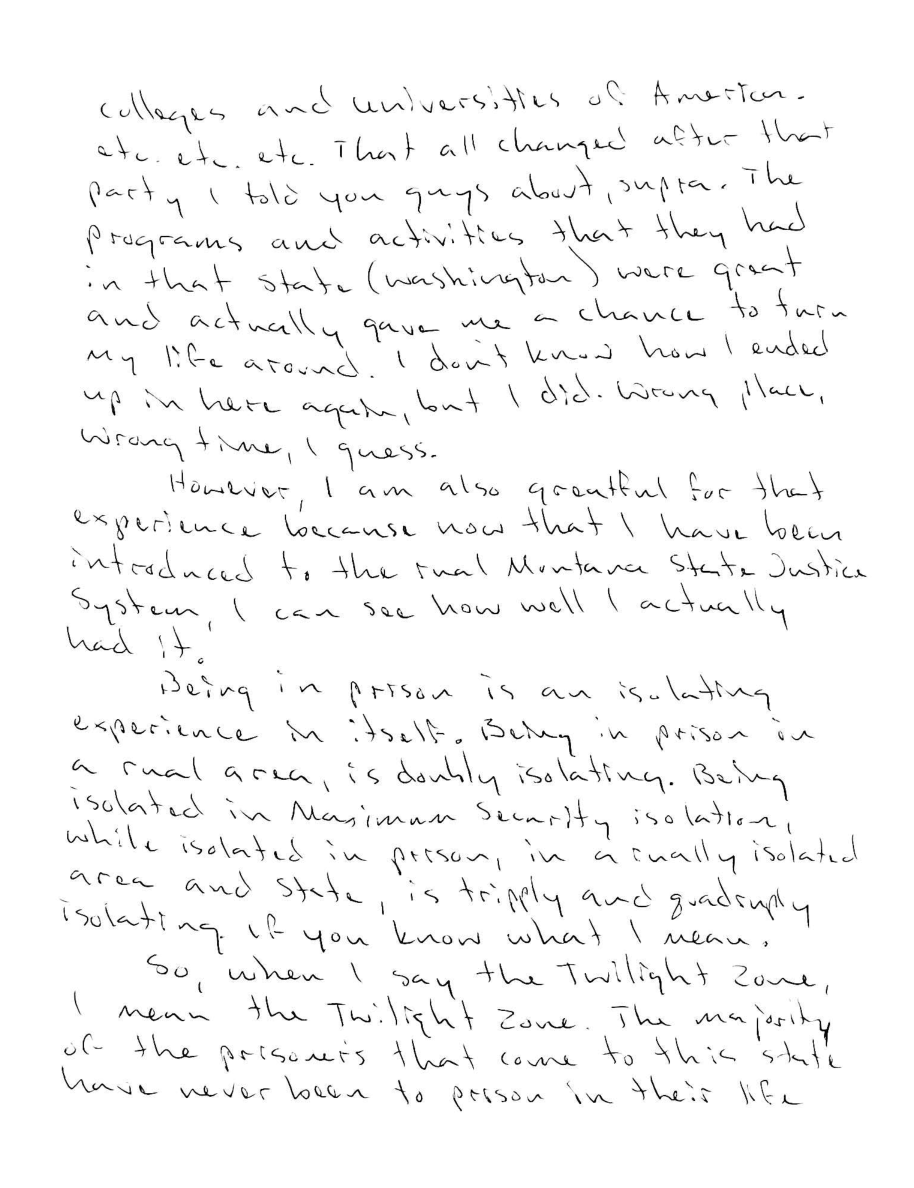 colleges and universities of American.
etc. etc. etc. That all changed after that
party I told you guys about, supra. The
programs and activities that they had
in that state (Washington) were great
and actually gave me a chance to turn
my life around. I don't know how I ended
up in here again, but I did. Wrong place,
wrong time, I guess.
However, I am also greatful for that
experience because now that I have been
introduced to the rual Montana State Justice
System, I can see how well I actually
had it.
Being in prison is an isolating
experience in itself. Being in prison in
a rual area, is doubly isolating. Being
isolated in Maximum Security isolation,
while isolated in prison, in a rually isolated
area and state, is tripply and quadruply
isolating. If you know what I mean.
So, when I say the Twilight Zone,
I mean the Twilight Zone. The majority
of the prisoners that come to this state
have never been to prison in their life